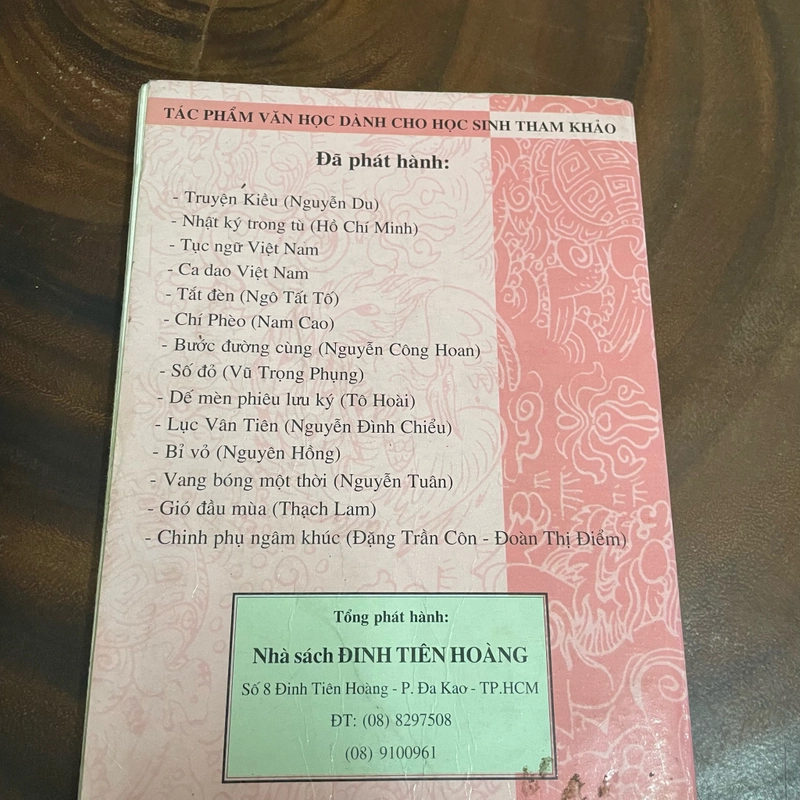 TÁC PHẨM VĂN HỌC DÀNH CHO HỌC SINH THAM KHẢO
Đã phát hành:
- Truyện Kiều (Nguyễn Du)
- Nhật ký trong tù (Hồ Chí Minh)
- Tục ngữ Việt Nam
- Ca dao Việt Nam
- Tắt đèn (Ngô Tất Tố)
- Chí Phèo (Nam Cao)
- Bước đường cùng (Nguyễn Công Hoan)
- Số đỏ (Vũ Trọng Phụng)
- Dế mèn phiêu lưu ký (Tô Hoài)
- Lục Vân Tiên (Nguyễn Đình Chiểu)
- Bỉ vỏ (Nguyên Hồng)
- Vang bóng một thời (Nguyễn Tuân)
- Gió đầu mùa (Thạch Lam)
- Chinh phụ ngâm khúc (Đặng Trần Côn - Đoàn Thị Điểm)
Tổng phát hành:
Nhà sách ĐINH TIÊN HOÀNG
Số 8 Đinh Tiên Hoàng - P. Đa Kao - TP.HCM
ĐT: (08) 8297508
(08) 9100961